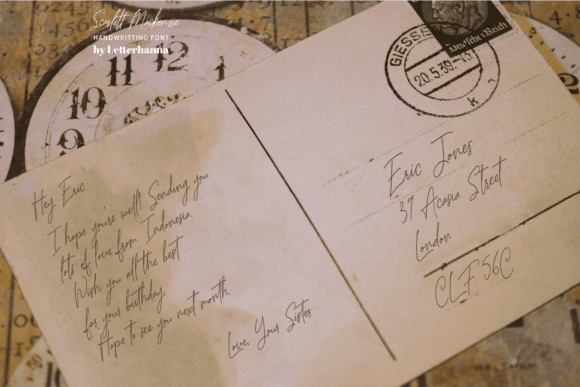 Scarlett Mackenzie
HANDWRITTING FONT
by Letterhanna
11
12
10
9
Hey Eric
I hope you're well! Sending you
lots of love from Indonesia.
Wish you all the best
for your birthday,
Hope to see you next month,
Love, Your Sister
20.5.39.-13
Deutsches Reich
Eric Jones
39 Acasia Street
London
CLF 56C